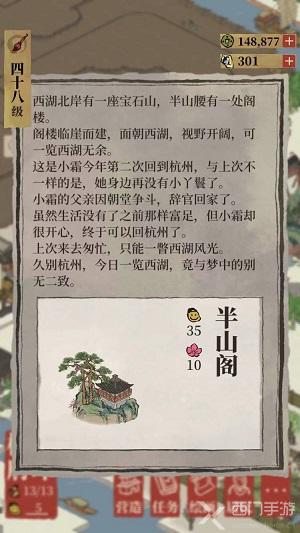 四十八级
148,877
301
西湖北岸有一座宝石山，半山腰有一处阁
楼。
阁楼临崖而建，面朝西湖，视野开阔，可
一览西湖无余。
这是小霜今年第二次回到杭州，与上次不
一样的是，她身边再没有小丫鬟了。
小霜的父亲因朝堂争斗，辞官回家了。
虽然生活没有了之前那样富足，但小霜却
很开心，终于可以回杭州了。
上次来去匆忙，只能一瞥西湖风光。
久别杭州，今日一览西湖，竟与梦中的别
无二致。
半山阁
35
10
13/13
5
营造
任务
西门手游